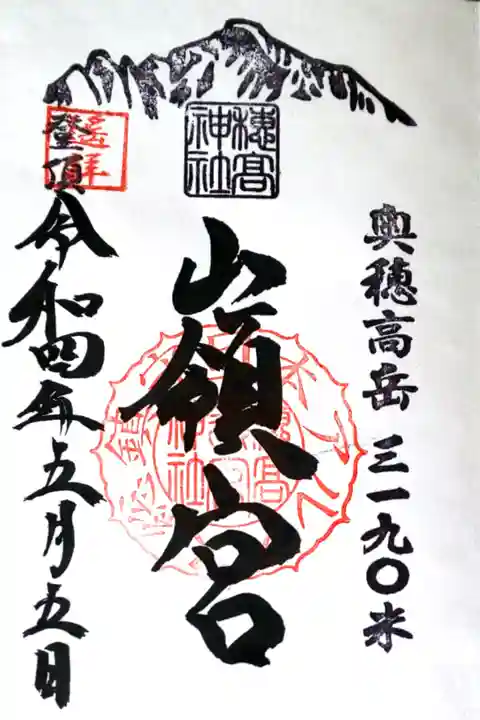 奥穂高岳 三一九〇米
穂高神社
嶺宮
登頂
遥拝
令和四年五月五日
穂高神社